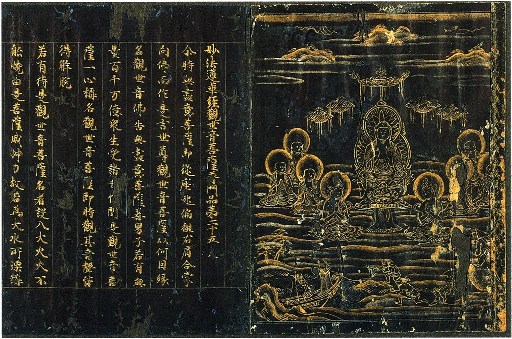 妙法蓮華經觀世音菩薩普門品第二十五
尒時無盡意菩薩即從座起偏袒右肩合掌
向佛而作是言世尊觀世音菩薩以何因緣
名觀世音佛告無盡意菩薩善男子若有無
量百千万億衆生受諸苦惱聞是觀世音菩
薩一心稱名觀世音菩薩即時觀其音聲皆
得解脫
若有持是觀世音菩薩名者設入大火火不
能燒由是菩薩威神力故若為大水所漂稱